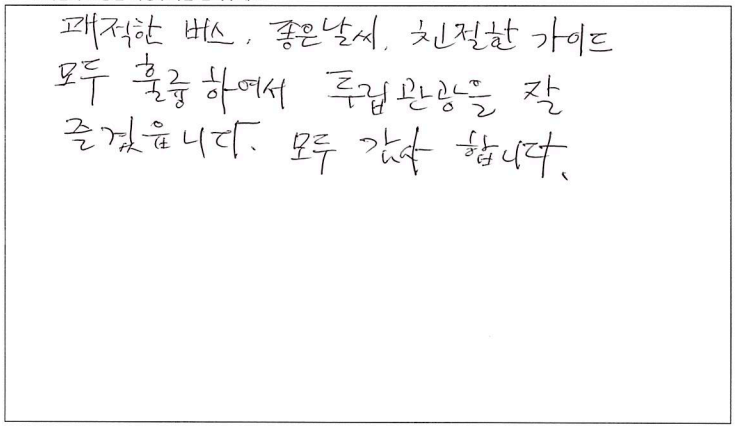 쾌적한 버스, 좋은날씨, 친절한 가이드
모두 훌륭하여서 투립관광을 잘
즐겼읍니다. 모두 감사 합니다.